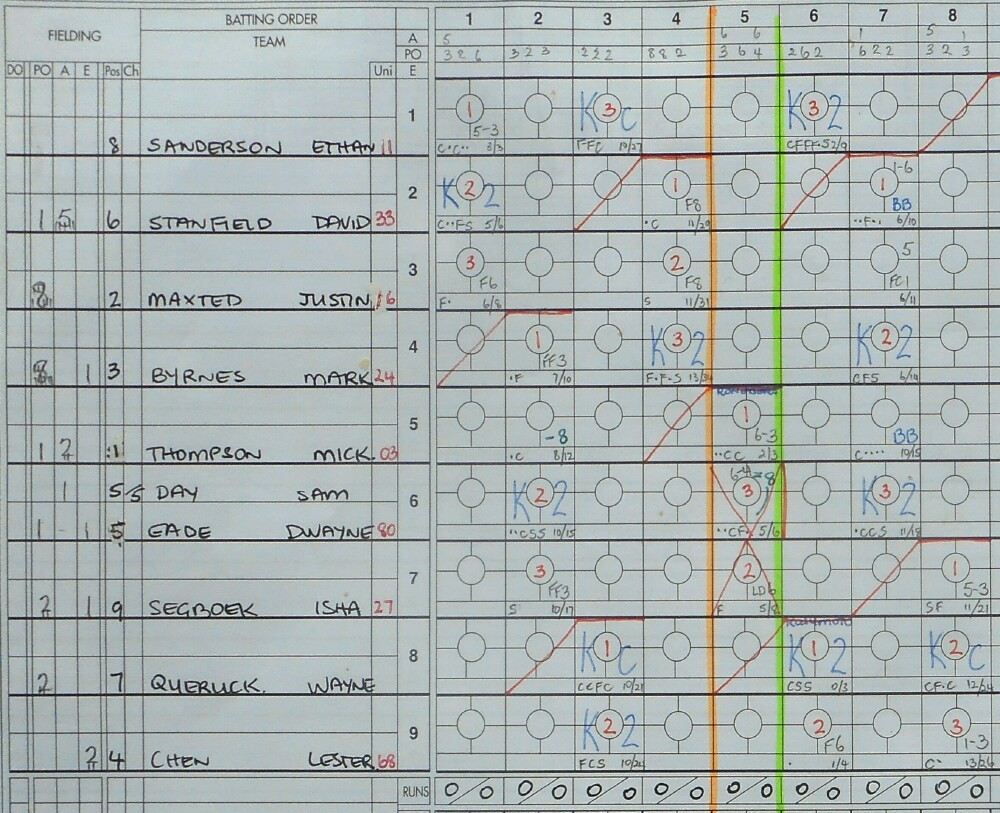 BATTING ORDER
FIELDING
TEAM
DO PO A E Pos Ch Uni
A
PO
E
1 2 3 4 5 6 7 8
5 6 6 1 5 1
3 2 6 3 2 3 2 2 2 8 8 2 3 6 4 2 6 2 6 2 2 3 2 3
8 SANDERSON ETHAN 11 1
1 5-3 3 K C 3 K 2
3/3 FFC 19/27 2/9
1 5 6 STANFIELD DAVID 33 2
K 2 2 1 F8 1-6 1 BB
C··FS 5/6 ·C 11/29 ··F·· 6/10
8 2 MAXTED JUSTIN 16 3
3 F6 2 F8 5 FC1
F· 6/8 S 11/31 6/11
8 1 3 BYRNES MARK 24 4
1 FF3 K 3 2 K 2 2
·F 7/10 F·F·S CFS 6/14
1 2 1 THOMPSON MICK 03 5
-8 1 6-3 BB
·C 8/12 ··CC 2/3 C···· 10/15
1 5/5 DAY SAM 6
1 - 1 5 EADE DWAYNE 80
K 2 2 3 K 3 2
··CSS 10/15 ··CF· 5/6 ·CCS 11/18
2 1 9 SEGBOEK ISHA 27 7
3 FF3 2 LD6 1 5-3
S 10/17 F SF 11/21
2 7 QUERUCK. WAYNE 8
K 1 C K 1 2 K 2 C
CCFC 10/21 CSS 0/3 CF·C 12/24
2 4 CHEN LESTER 68 9
K 2 2 2 F6 3 1-3
FCS 10/24 · 1/4 C· 13/26
RUNS 0/0 0/0 0/0 0/0 0/0 0/0 0/0 0/0